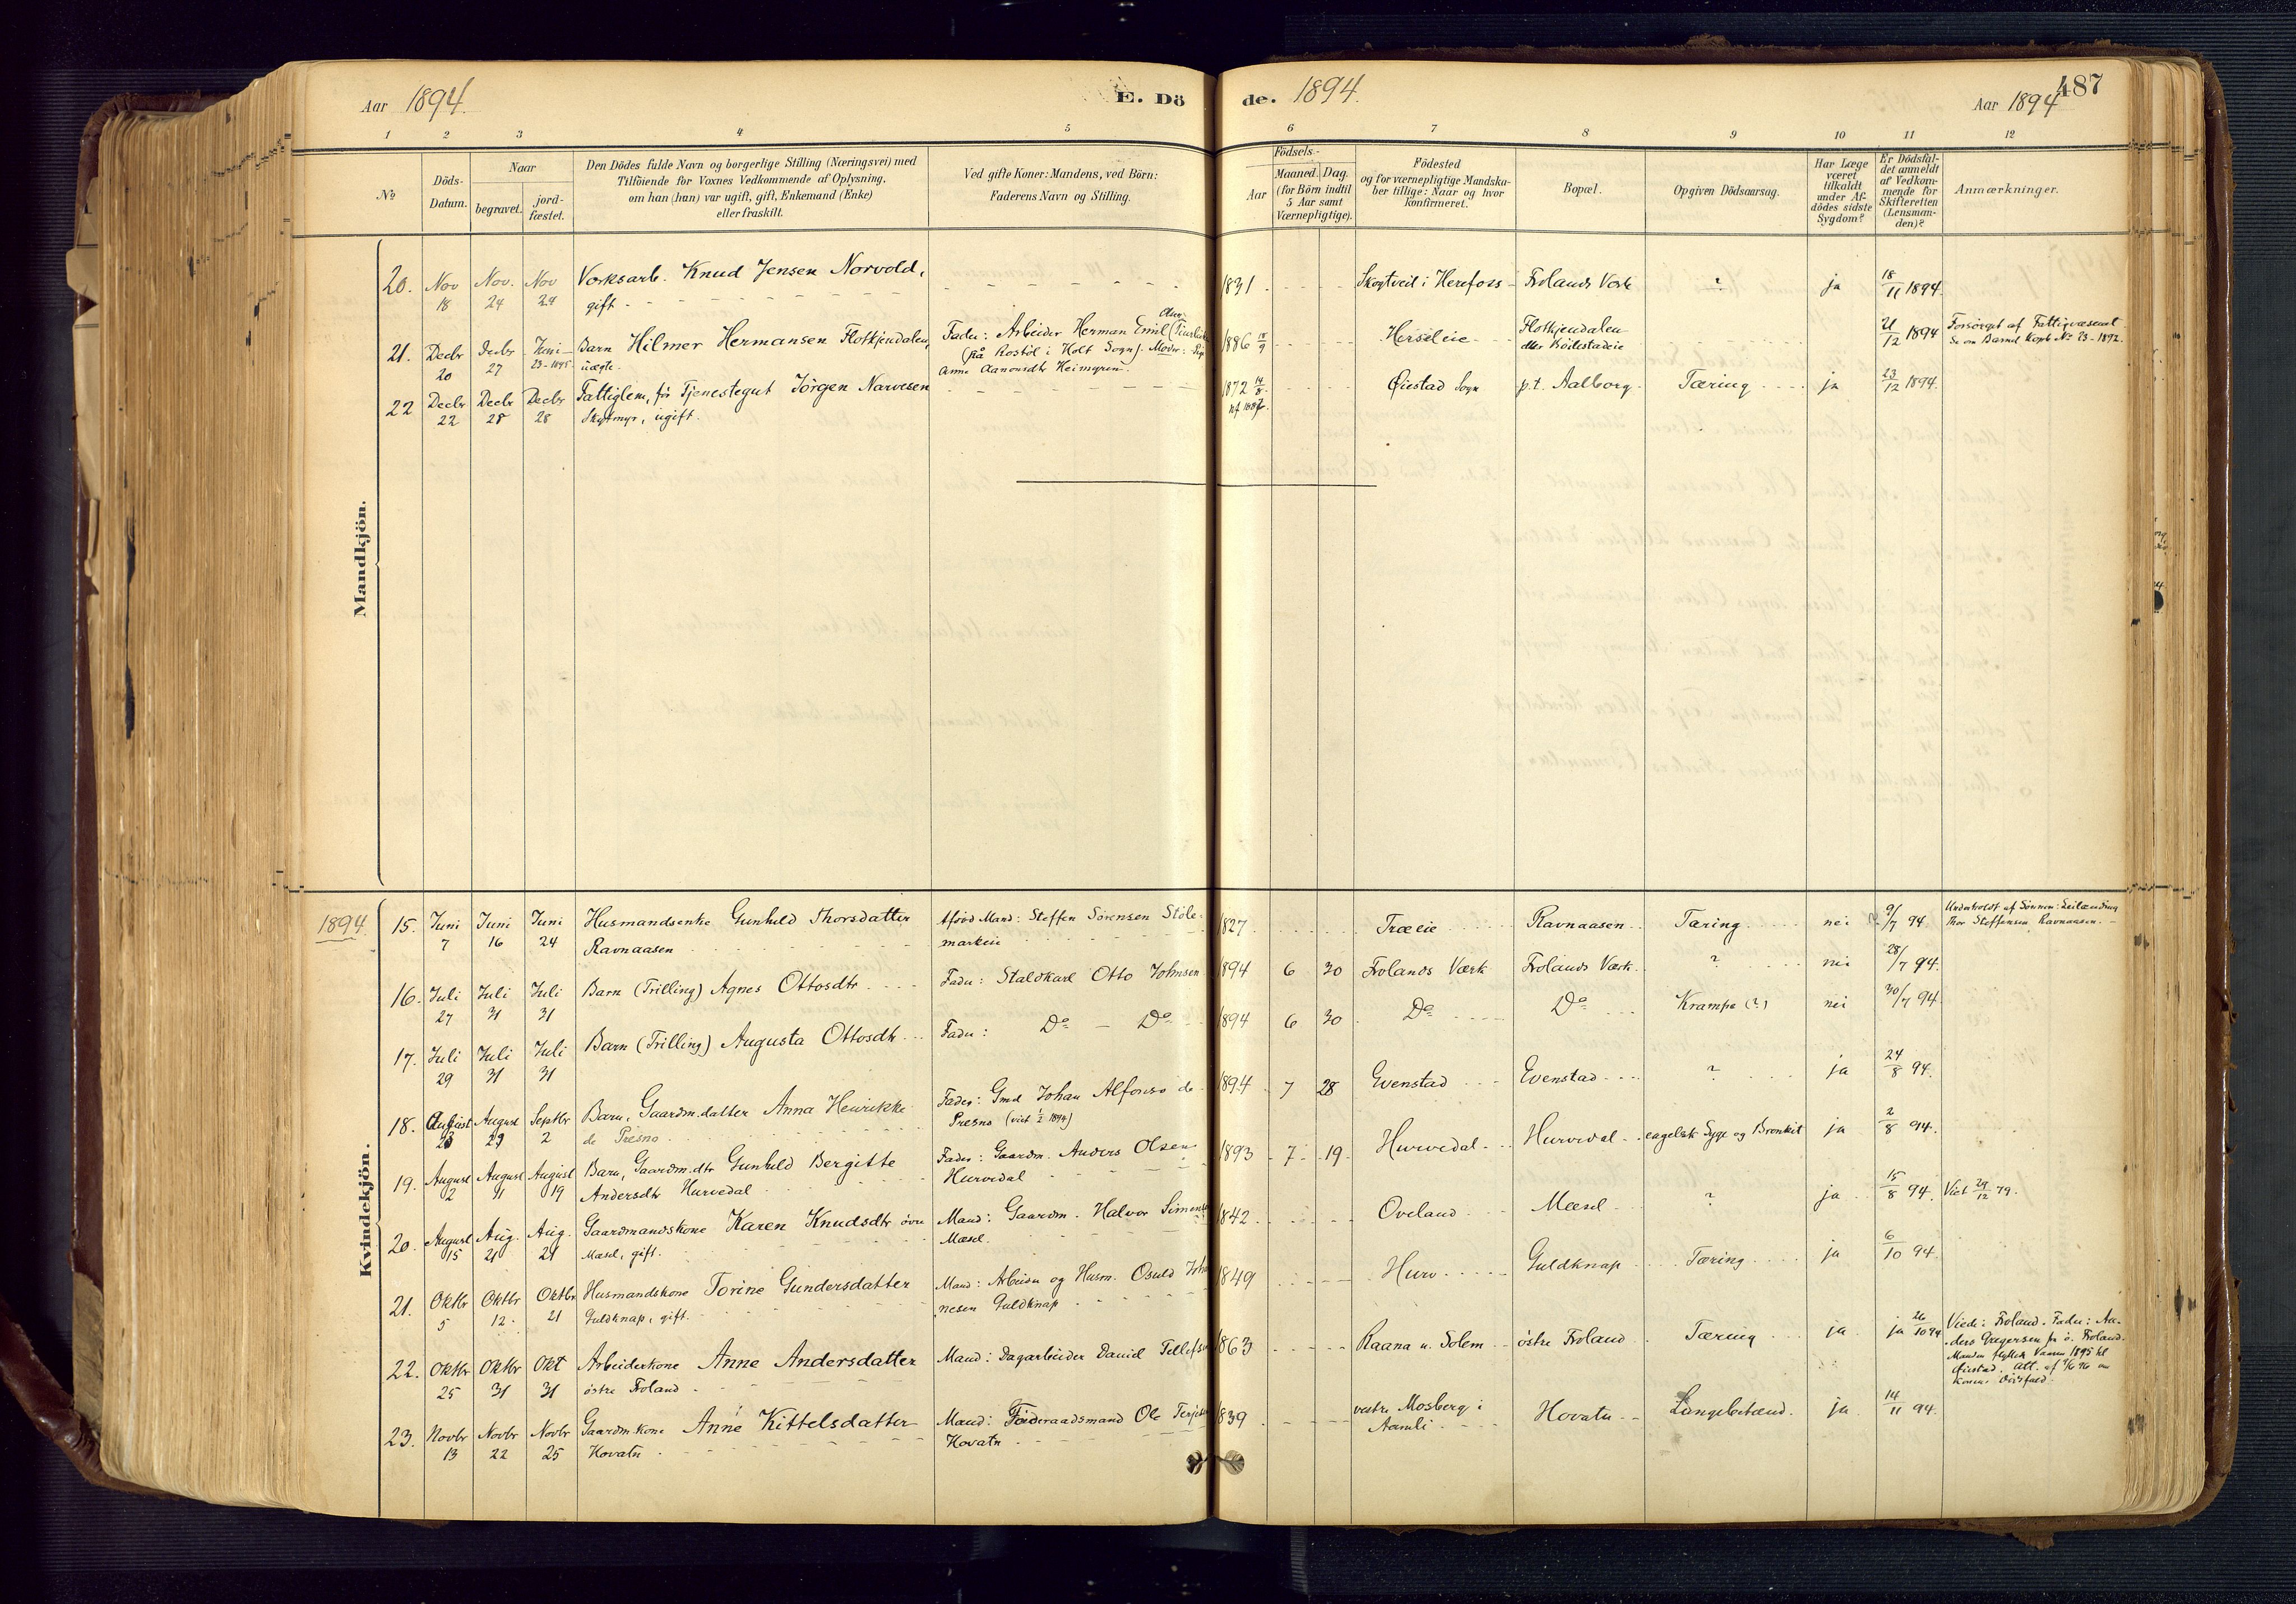 Aar 1894.
E. Dö
de. 1894.
Aar 1894
487
1 2 3 4 5 6 7 8 9 10 11 12
No
Döds-
Datum.
Naar
begravet.
jord-
fæstet.
Den Dödes fulde Navn og borgerlige Stilling (Næringsvei) med
Tilföiende for Voxnes Vedkommende af Oplysning,
om han (hun) var ugift, gift, Enkemand (Enke)
eller fraskilt.
Ved gifte Koner: Mandens, ved Börn:
Faderens Navn og Stilling.
Födsels-
Aar
Maaned. Dag.
(for Börn indtil
5 Aar samt
Værnepligtige).
Födested
og for værnepligtige Mandska-
ber tillige: Naar og hvor
konfirmeret.
Bopæl.
Opgiven Dödsaarsag.
Har Læge
været
tilkaldt
under Af-
dödes sidste
Sygdom?
Er Dödsfal-
det anmeldt
af Vedkom-
mende for
Skifteretten
(Lensman-
den)?
Anmærkninger.
Mandkjön.
20. Nov Nov. Nov Verksarb. Knud Jensen Norvold, 1831 Skogtveit i Herefoss Frolands Værk ? ja 18/11 1894
18 24 24 gift
21. Decbr Decbr Juni Barn Hilmer Hermansen Flotkjendalen, Fader: Arbeider Herman Emil 1886 9 Herseleie Flotkjendalen 21/12 1894 Forsørget af Fattigvæsenet
20 27 23-1895 uægte. (på Rostöl i Holt Sogn). Moder: Pige eller Bödestadeie Se om Barnet Kopb No 23-1892.
Anne Aanonsdtr Heimyren
22 Decbr Decbr Decbr Fattiglem, för Tjenestegut Jörgen Narvesen 1872 14/8 Øiestad Sogn p.t. Aalborg Tæring ja 23/12 1894.
22 28 28 Skytmyr, ugift.
1894
Kvindekjön.
15. Juni Juni Juni Husmandsenke Gunhild Thorsdatter Afdöd Mand: Steffen Sörensen Stöle- 1827 Træeie Ravnaasen Tæring nei 9/7 94 Underholdt af Sönnen: Leilænding
7 16 24 Ravnaasen markeie Thor Steffensen Ravnaasen.
16. Juli Juli Juli Barn (Trilling) Agnes Ottosdtr Fader: Staldkarl Otto Johnsen 1894 6 30 Frolands Værk Frolands Værk ? nei 28/7 94.
27 31 31
17. Juli Juli Juli Barn (Trilling) Augusta Ottosdtr Fader: Do - Do 1894 6 30 Do Do Krampe (?) nei 30/7 94
29 31 31
18. August August Septbr Barn, Gaardm.datter Anna Henrikke Fader: Gmd Johan Alfonso de 1894 7 28 Evenstad Evenstad ? ja 24/8 94.
23 29 2 de Presno Presno (viet 1/2 1894)
19. August August August Barn, Gaardm.dtr Gunhild Bergitte Fader: Gaardm. Anders Olsen 1893 7 19 Hurvedal Hurvedal engelsk Syge og Bronkit ja 2/8 94.
2 11 19 Andersdtr Hurvedal Hurvedal
20. August Aug. Aug. Gaardmandskone Karen Knudsdtr övre Mand: Gaardm. Halvor Simonsen 1842 Oveland Mæsel ? ja 15/8 94. Viet 29/12 79.
15 21 21 Mæsel, gift. Mæsel.
21. Oktbr Oktbr Oktbr Husmandskone Torine Gundersdatter Mand: Arbeider og Husm. Osuld Joha 1849 Hurv Guldknap Tæring ja 6/10 94.
5 12 21 Guldknap, gift. nesen Guldknap
22. Oktbr Oktbr Okt Arbeiderkone Anne Andersdatter Mand: Dagarbeider Daniel Tellefsen 1863 Raana u. Solem östre Froland Tæring ja ja 26/10 94 Viede: Froland. Fader: An-
25 31 31 östre Froland ders Gregersen fr ö. Froland.
Manden flyttet Vaaren 1895 til
Øiestad. Att. af 96 om
Konens Dödsfald.
23. Novbr Novbr Novbr Gaardm.kone Anne Kittelsdatter Mand: Föderaadsmand Ole Terjesen 1839 vestre Mosberg i Hovatn Lungebetænd. ja 14/11 94.
13 22 25 Hovatn Hovatn Aamli